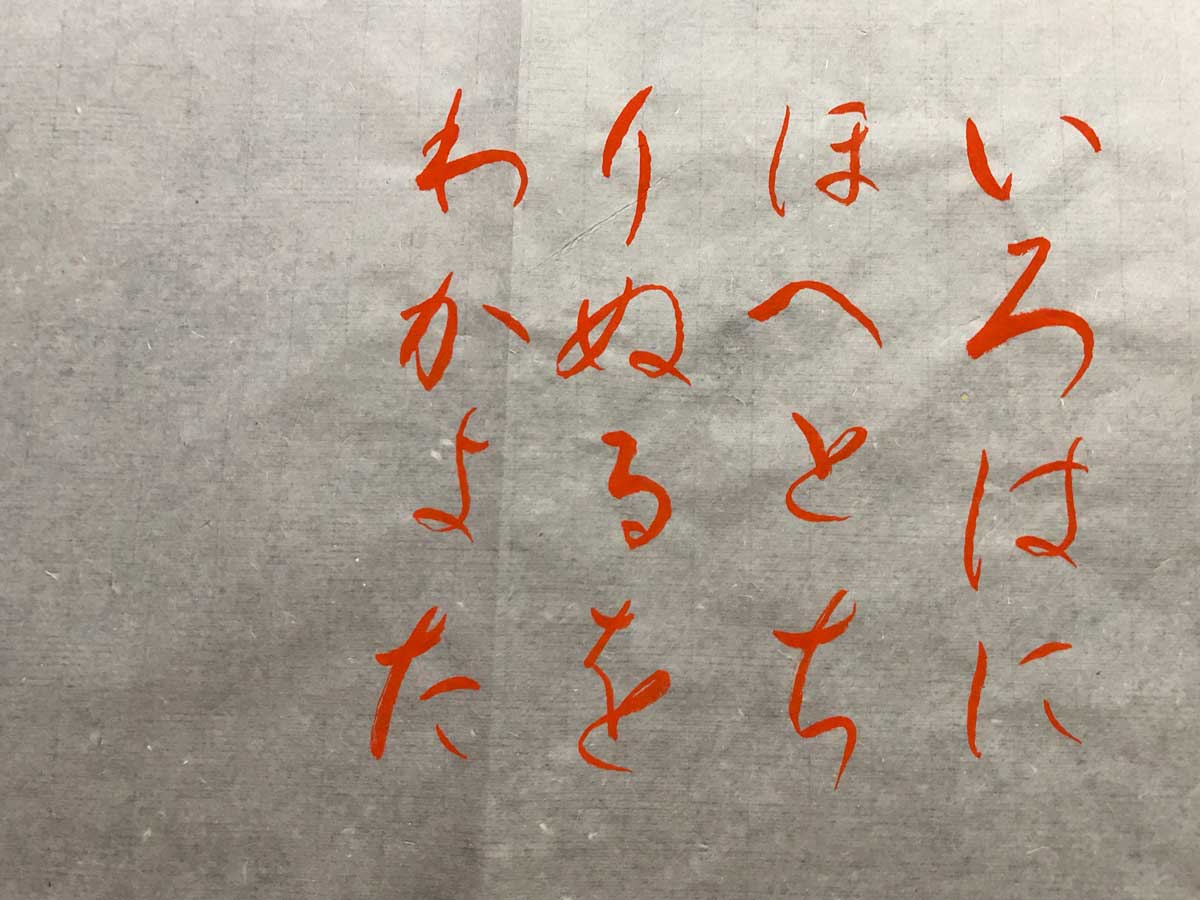 いろはに
ほへとち
りぬるを
わかよた